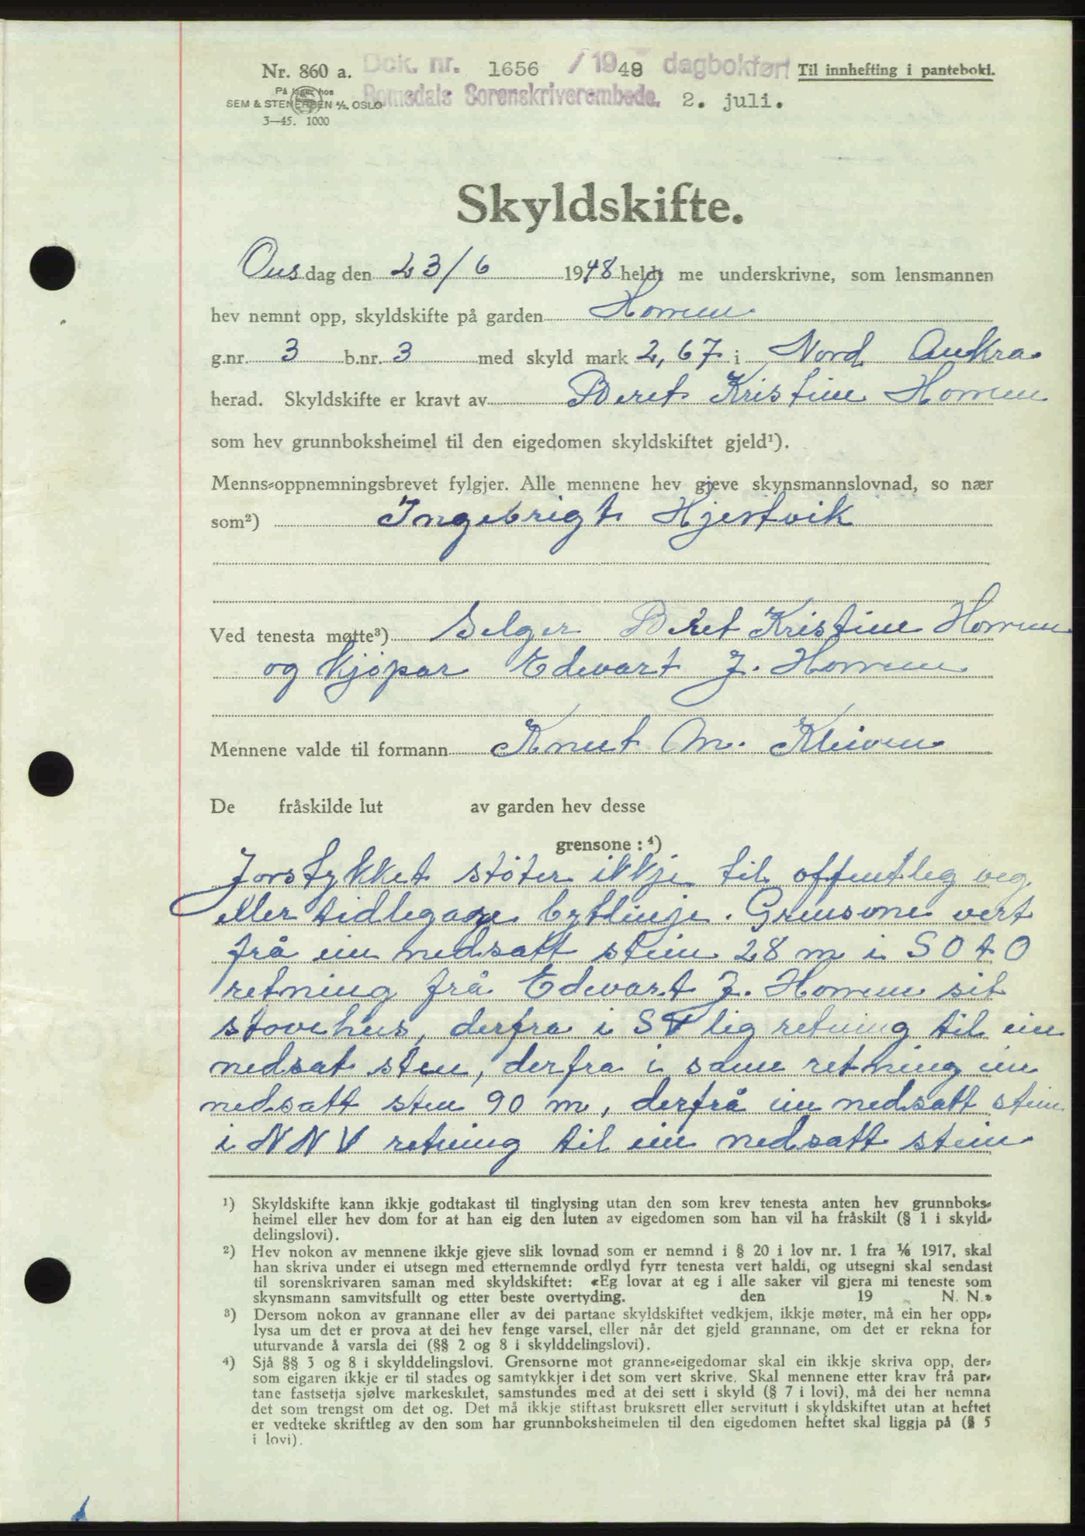 Nr. 860 a. Dok. nr. 1656 / 1948 dagbokført Til innhefting i panteboki.
På lager hos
SEM & STENERSEN A/S, OSLO Romsdals Sorenskriverembede. 2. juli.
3—45. 1000
Skyldskifte.
Ons dag den 23/6 1948 heldt me underskrivne, som lensmannen
hev nemnt opp, skyldskifte på garden Horrem
g.nr. 3 b.nr. 3 med skyld mark 2,67 i Nord Aukra
herad. Skyldskifte er kravt av Beret Kristine Horrem
som hev grunnboksheimel til den eigedomen skyldskiftet gjeld¹).
Menns-oppnemningsbrevet fylgjer. Alle mennene hev gjeve skynsmannslovnad, so nær
som²) Ingebrigt Hjertvik
Ved tenesta møtte³) Selger Beret Kristine Horrem
og kjöpar Edevart J. Horrem
Mennene valde til formann Knut M. Kleiven
De fråskilde lut av garden hev desse
grensone : ⁴)
Jorstykket stöter ikkje til offentleg veg
eller tidlegare bytlinje. Grensone vert
frå ein nedsatt stein 28 m i S O t O
retning frå Edevart J. Horrem sit
stovehus, derfra i S V lig retning til ein
nedsat sten, derfra i same retning ein
nedsatt sten 90 m, derfrå ein nedsatt stein
i N N V retning til ein nedsatt stein
¹) Skyldskifte kann ikkje godtakast til tinglysing utan den som krev tenesta anten hev grunnboks-
heimel eller hev dom for at han eig den luten av eigedomen som han vil ha fråskilt (§ 1 i skyld-
delingslovi).
²) Hev nokon av mennene ikkje gjeve slik lovnad som er nemnd i § 20 i lov nr. 1 fra 1/6 1917, skal
han skriva under ei utsegn med etternemnde ordlyd fyrr tenesta vert haldi, og utsegni skal sendast
til sorenskrivaren saman med skyldskiftet: «Eg lovar at eg i alle saker vil gjera mi teneste som
skynsmann samvitsfullt og etter beste overtyding. den 19 N. N.»
³) Dersom nokon av grannane eller av dei partane skyldskiftet vedkjem, ikkje møter, må ein her opp-
lysa um det er prova at dei hev fenge varsel, eller når det gjeld grannane, om det er rekna for
uturvande å varsla dei (§§ 2 og 8 i skylddelingslovi).
⁴) Sjå §§ 3 og 8 i skylddelingslovi. Grensorne mot granne-eigedomar skal ein ikkje skriva opp, der-
som eigaren ikkje er til stades og samtykkjer i det som vert skrive. Skal mennene etter krav frå par-
tane fastsetja sjølve markeskilet, samstundes med at dei sett i skyld (§ 7 i lovi), må dei her nemna
det som trengst om det og. Det må ikkje stiftast bruksrett eller servitutt i skyldskiftet utan at heftet
er vedteke skriftleg av den som har grunnboksheimelen til den eigedomen heftet skal liggja på (§ 5
i lovi).